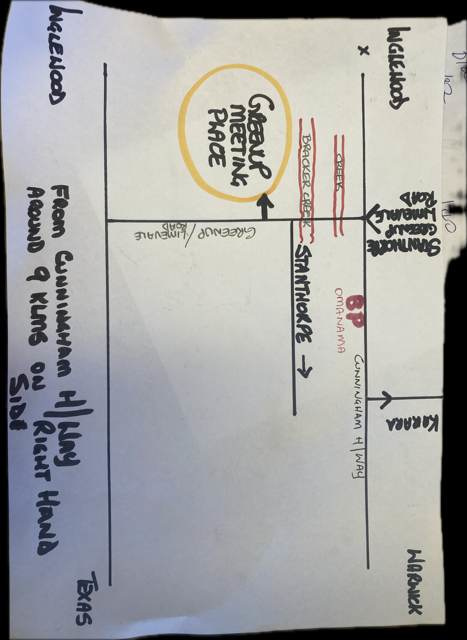 KARARA
INGLEWOOD
STANTHORPE
GREENUP
LIMEVALE
ROAD
WARWICK
X
BP
OMANAMA
CUNNINGHAM H/WAY
CREEK
BRACKER CREEK
STANTHORPE →
GREENUP
MEETING
PLACE
GREENUP/
LIMEVALE
ROAD
INGLEWOOD
TEXAS
FROM CUNNINGHAM H/WAY
AROUND 9 KLMS ON RIGHT HAND
SIDE